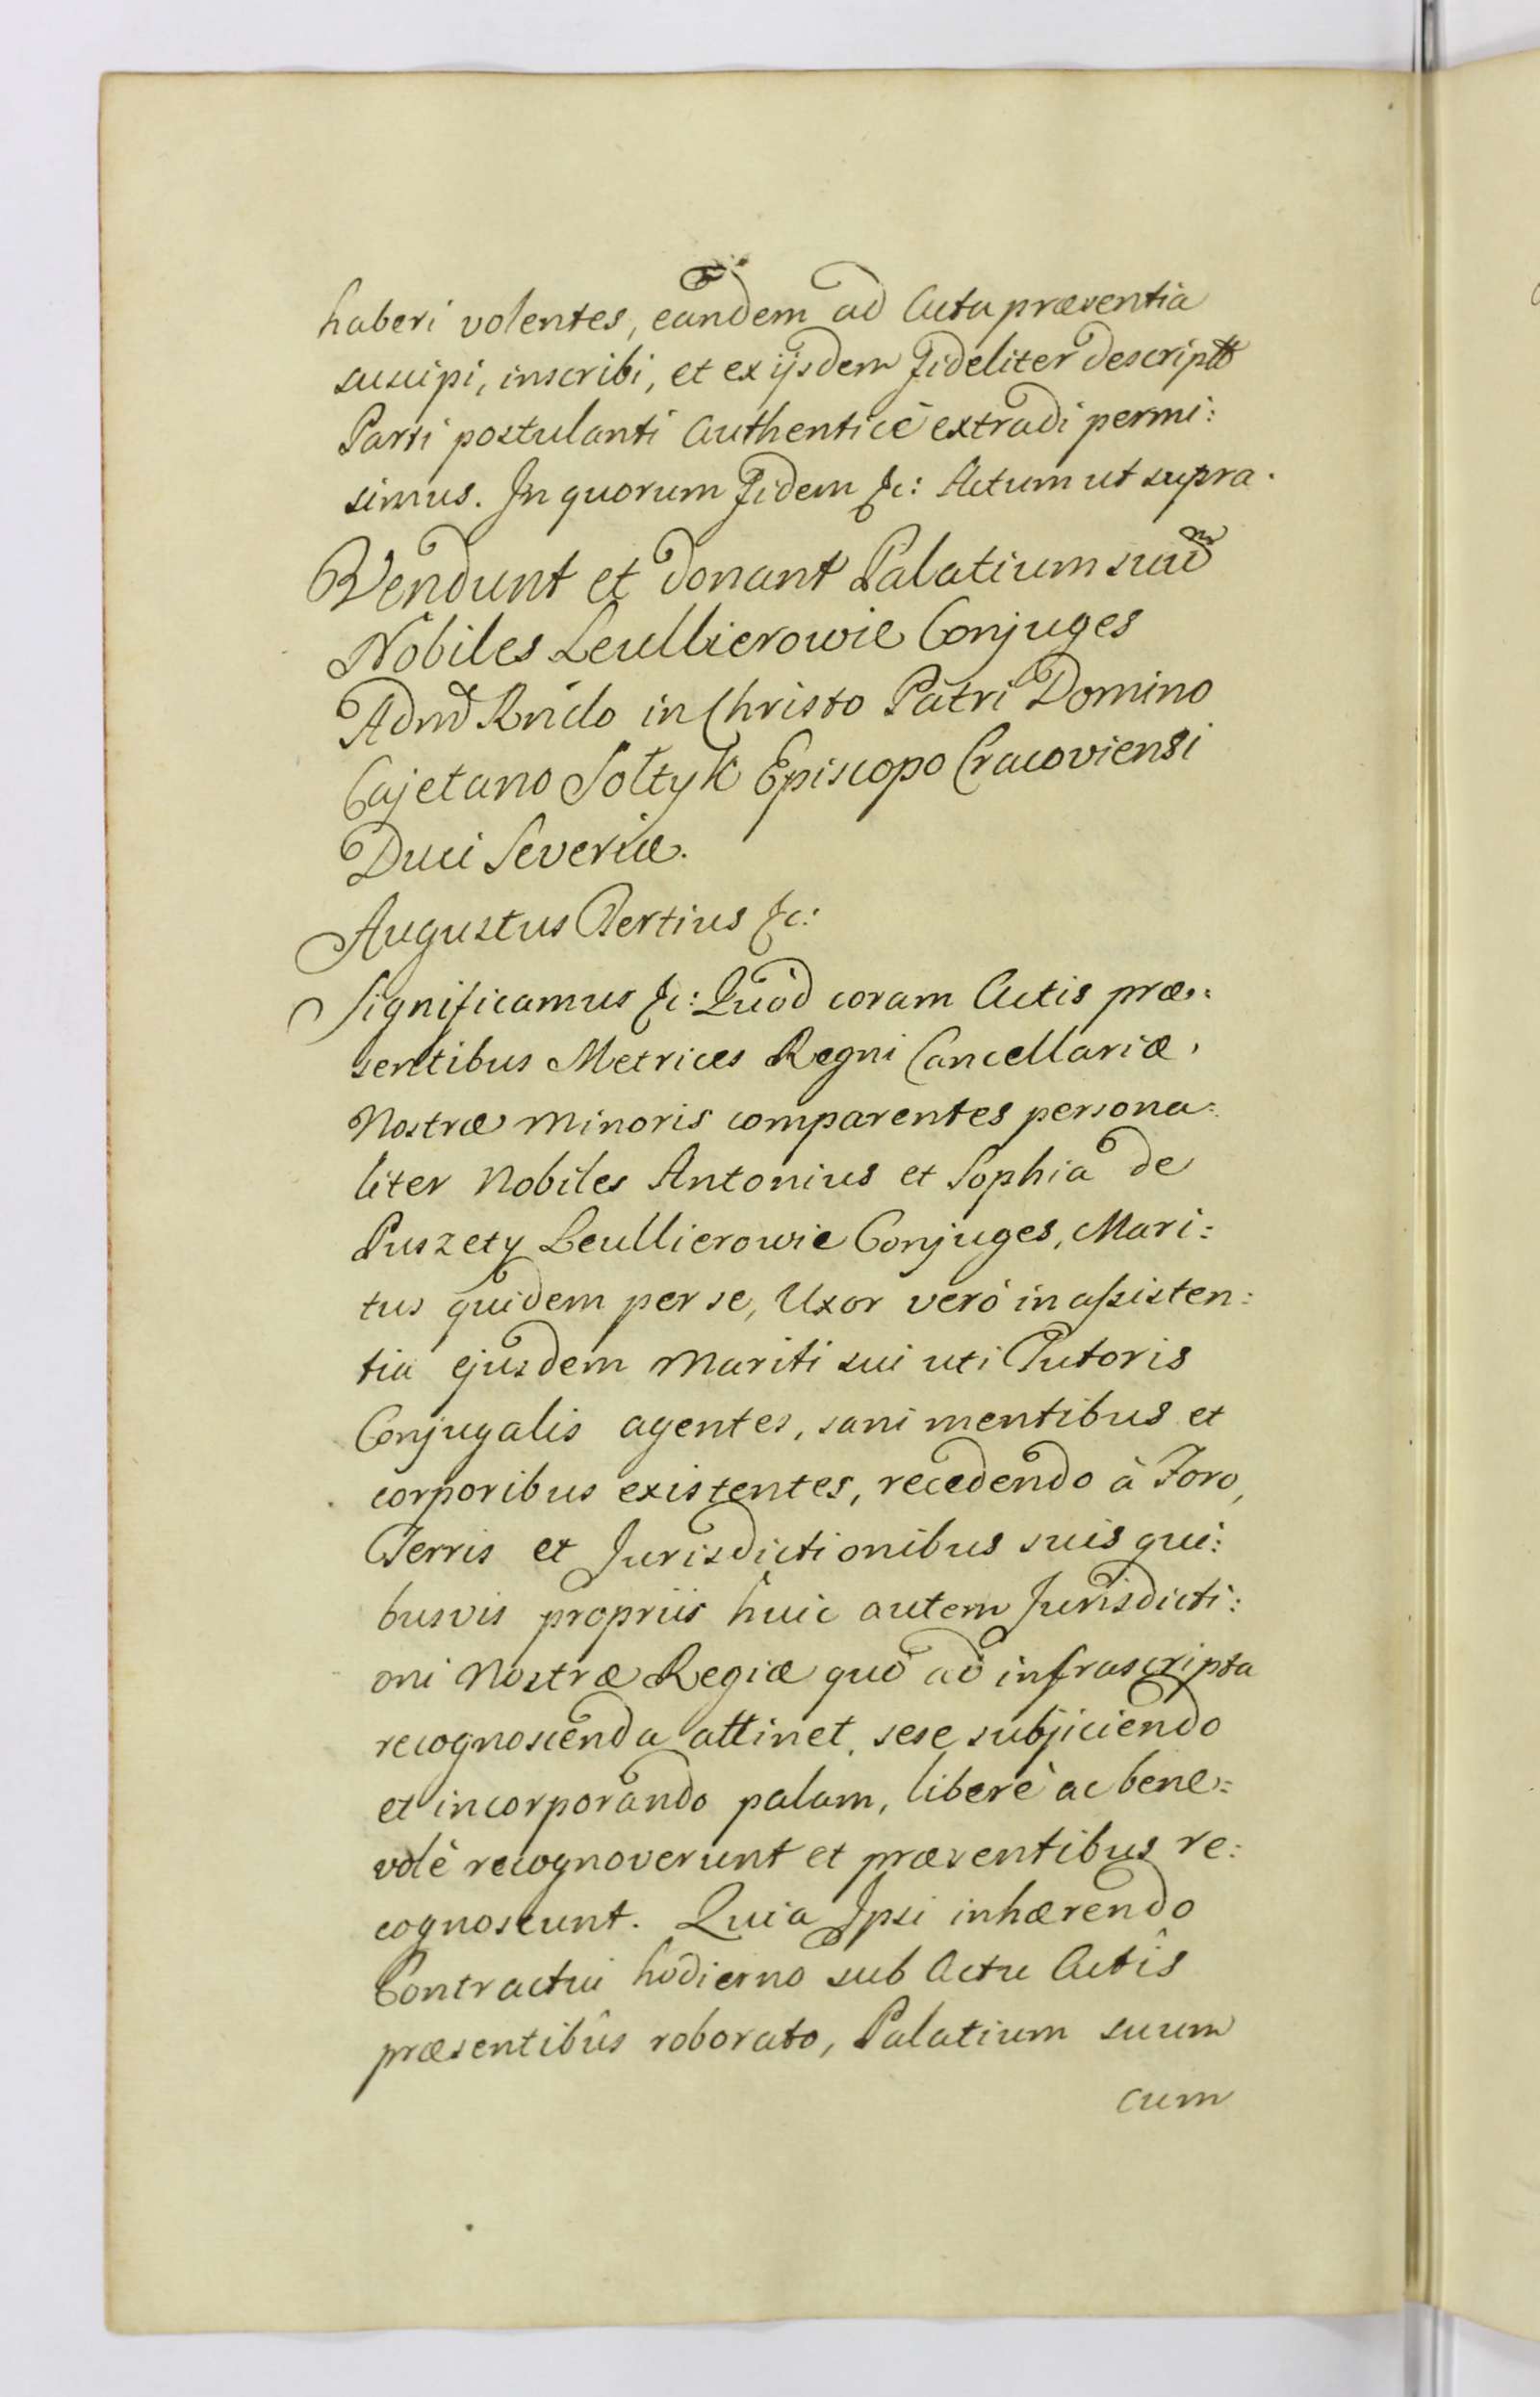 haberi volentes, eandem ad Acta præsentia
suscipi, inscribi, et ex ijsdem fideliter descript
Parti postulanti Authenticè extradi permi:
simus. In quorum fidem &c: Actum ut supra.
Vendunt et donant Palatium suũ
Nobiles Leullierowie Conjuges
Admd Rndo in Christo Patri Domino
Cajetano Sołtyk Episcopo Cracoviensi
Duci Severiæ.
Augustus Tertius &c:
Significamus &c: Quòd coram Actis præ:
sentibus Metrices Regni Cancellariæ,
Nostræ minoris comparentes persona:
liter Nobiles Antonius et Sophia de
Puszety Leullierowie Conjuges, Mari:
tus quidem per se, Uxor verò in assisten:
tia ejusdem Mariti sui uti Tutoris
Conjugalis agentes, sani mentibus et
corporibus existentes, recedendo à Foro,
Terris et Jurisdictionibus suis qui:
busvis propriis huic autem Jurisdicti:
oni Nostræ Regiæ quò ad infrascripta
recognoscenda attinet, sese subjiciendo
et incorporando palam, liberè ac bene:
volè recognoverunt et præsentibus re:
cognoscunt. Quia Ipsi inhærendo
Contractui hodierno sub Actu Actîs
præsentibûs roborato, Palatium suum
cum